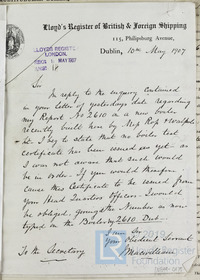 Lloyd's Register of British & Foreign Shipping
115, Philipsburg Avenue,
Dublin, 10th May 1907
LLOYDS REGISTER
LONDON.
MAY 1907
Sir
In reply to the enquiry contained
in your letter of yesterday's date regarding
my Report No. 2610 on a new boiler
recently built here by Messrs Ross & Walpole
Ld I beg to state that no boiler test
certificate has been issued as yet as
I was not aware that such would
be in order. If you would therefore
cause this Certificate to be issued from
your Head Surveyors Office I would
be obliged, giving the Number as now
stamped on the Boiler by 2610 Dub.
I am Sir
Your Obedient Servant
To the Secretary